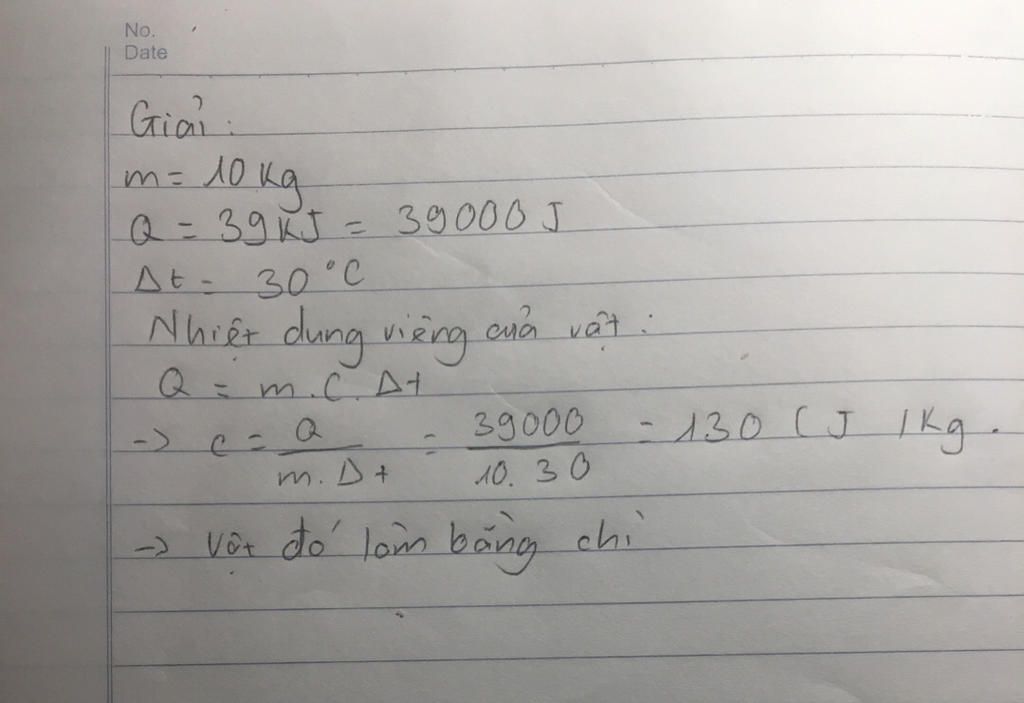 No.
Date
Giải:
m = 10 kg
Q = 39 KJ = 39000 J
Δt = 30 °C
Nhiệt dung riêng của vật:
Q = m.C.Δt
-> c = Q / m.Δt = 39000 / 10.30 = 130 (J /Kg.
-> Vật đó làm bằng chì